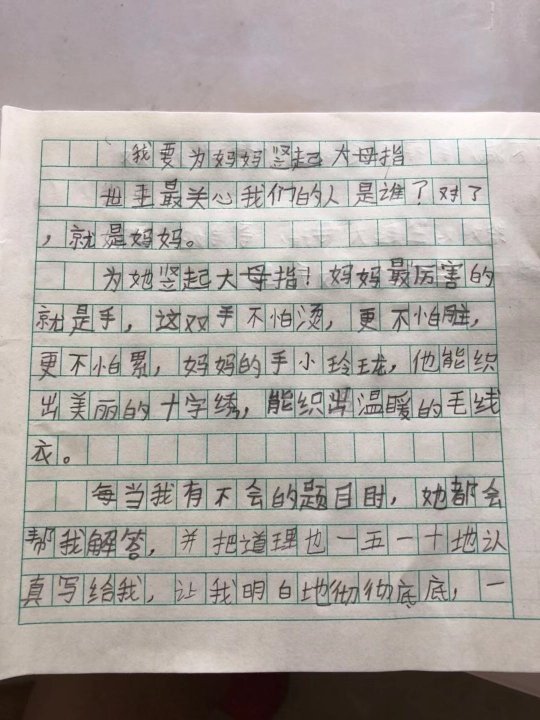 我要为妈妈竖起大母指
世主最关心我们的人是谁？对了
，就是妈妈。
为她竖起大母指！妈妈最厉害的
就是手，这双手不怕烫，更不怕脏，
更不怕累，妈妈的手小玲珑，他能织
出美丽的十字绣，能织出温暖的毛线
衣。
每当我有不会的题目时，她都会
帮我解答，并把道理也一五一十地认
真写给我，让我明白地彻彻底底，一